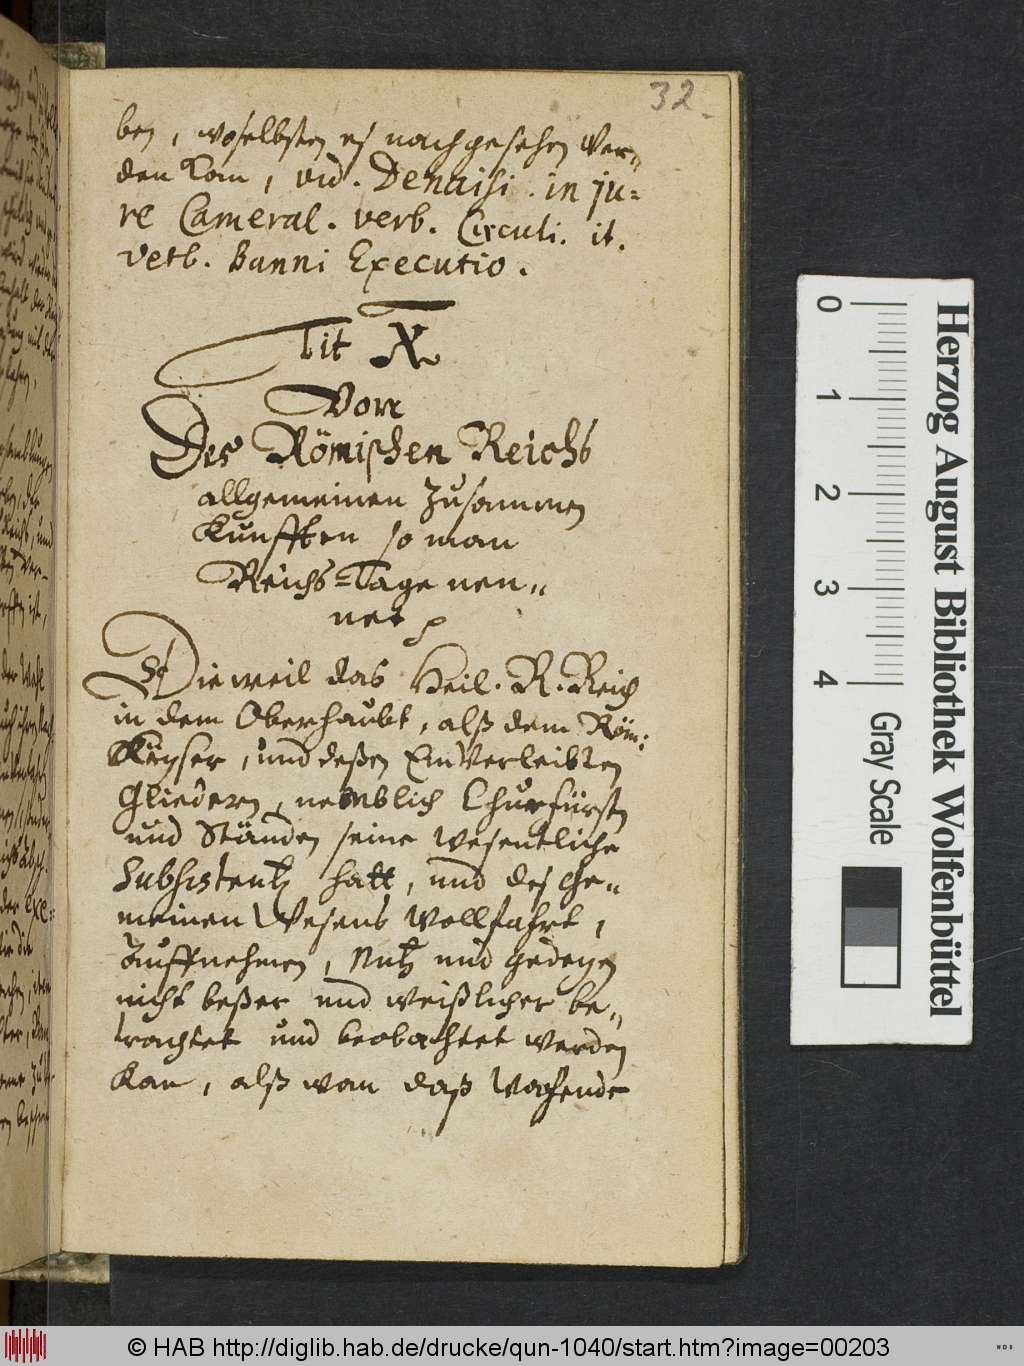 32
ben, woselbsten es nachgesehen wer=
den kan, vid. Denaisi. in ju=
re Cameral. verb. Circuli. it.
verb. Banni Executio.
Tit X
Von
Des Römischen Reichs
allgemeinen Zusammen
Kunfften so man
Reichs=Tage nen=
net
Dieweil das Heil. R. Reich
in dem Oberhaubt, alß dem Röm:
Keyser, und deßen Einverleibten
Gliedern, nemblich Churfürsten
und Ständen seine wesentliche
Subsistentz hatt, und des ge=
meinen Wesens Wollfahrt,
Auffnehmen, Nutz und gedeyen
nicht beßer und weißlicher be=
trachtet und beobachtet werden
Kan, alß wan daß
Herzog August Bibliothek Wolfenbüttel
0 1 2 3 4
Gray Scale
© HAB http://diglib.hab.de/drucke/qun-1040/start.htm?image=00203